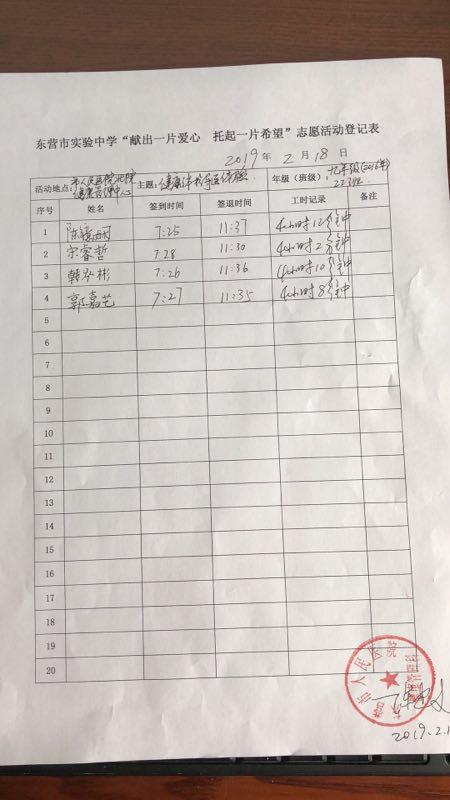 东营市实验中学“献出一片爱心 托起一片希望”志愿活动登记表
2019年 2月 18日
活动地点： 市人民医院北院 健康管理中心 主题： 健康 导医体验 年级（班级）： 九年级(2016年) 22.3班
序号 姓名 签到时间 签退时间 工时记录 备注
1 7:25 11:37 4小时12分钟
2 宋睿哲 7:28 11:30 4小时2分钟
3 韩 彬 7:26 11:36 4小时10分钟
4 郭嘉艺 7:27 11:35 4小时8分钟
5
6
7
8
9
10
11
12
13
14
15
16
17
18
19
20
东营市人民医院
2019.2.1